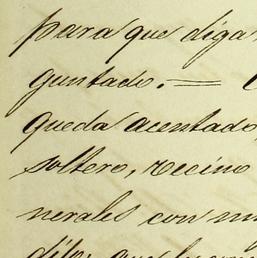 para que diga
guntado. =
queda acentado,
soltero, vecino
nerales con
dijo: que